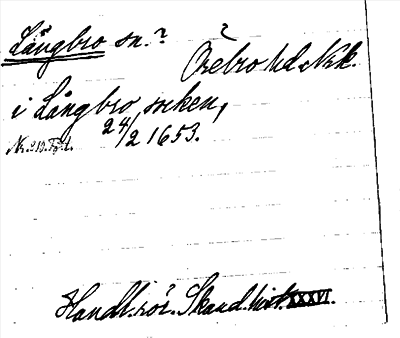 Långbro sn.?
Örebro hd. Nke.
i Långbro socken,
24/2 1653.
Handl. rör. Skand. hist. XXXVI.